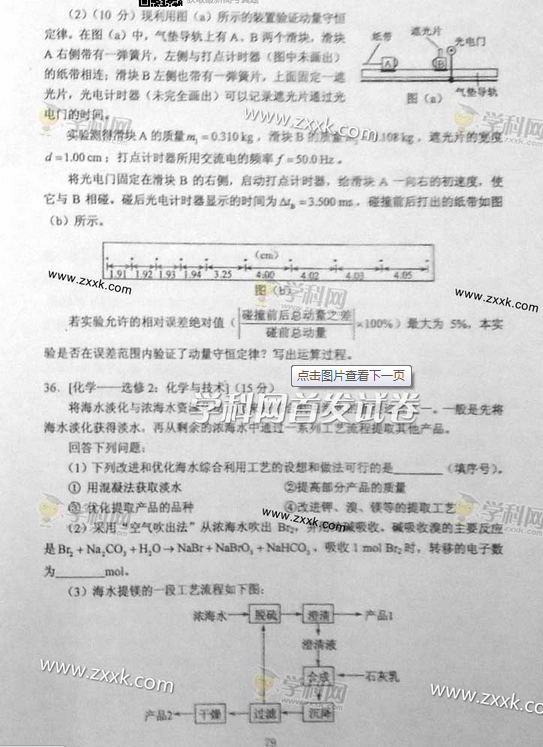 (2)(10 分)现利用图(a)所示的装置验证动量守恒
定律。在图(a)中,气垫导轨上有 A、B 两个滑块,滑块
A 右侧带有一弹簧片,左侧与打点计时器(图中未画出)
的纸带相连;滑块 B 左侧也带有一弹簧片,上面固定一遮
光片,光电计时器(未完全画出)可以记录遮光片通过光
电门的时间。
纸带
遮光片
光电门
A
B
气垫导轨
图(a)
实验测得滑块 A 的质量 m₁ = 0.310 kg,滑块 B 的质量 0.108 kg,遮光片的宽度
d = 1.00 cm;打点计时器所用交流电的频率 f = 50.0 Hz。
将光电门固定在滑块 B 的右侧,启动打点计时器,给滑块 A 一向右的初速度,使
它与 B 相碰。碰后光电计时器显示的时间为 Δt_B = 3.500 ms,碰撞前后打出的纸带如图
(b)所示。
(cm)
1.91 1.92 1.93 1.94 3.25 4.00 4.02 4.03 4.05
图(b)
若实验允许的相对误差绝对值(|碰撞前后总动量之差/碰前总动量|×100%)最大为 5%,本实
验是否在误差范围内验证了动量守恒定律?写出运算过程。
点击图片查看下一页
36. [化学——选修 2:化学与技术](15 分)
将海水淡化与浓海水资 一。一般是先将
海水淡化获得淡水,再从剩余的浓海水中通过一系列工艺流程提取其他产品。
回答下列问题:
(1)下列改进和优化海水综合利用工艺的设想和做法可行的是________(填序号)。
① 用混凝法获取淡水 ②提高部分产品的质量
③ 优化提取产品的品种 ④改进钾、溴、镁等的提取工艺
(2)采用“空气吹出法”从浓海水吹出 Br₂,并用 碱吸收。碱吸收溴的主要反应
是 Br₂ + Na₂CO₃ + H₂O → NaBr + NaBrO₃ + NaHCO₃,吸收 1 mol Br₂ 时,转移的电子数
为________mol。
(3)海水提镁的一段工艺流程如下图:
浓海水 脱硫 澄清 产品1
澄清液
合成 石灰乳
产品2 干燥 过滤 沉降
79
学科网
www.zxxk.com
www.zxxk.com
学科网
www.zxxk.com
学科网首发试卷
www.zxxk.com
学科网
学科网
www.zxxk.com
学科网
www.zxxk.com